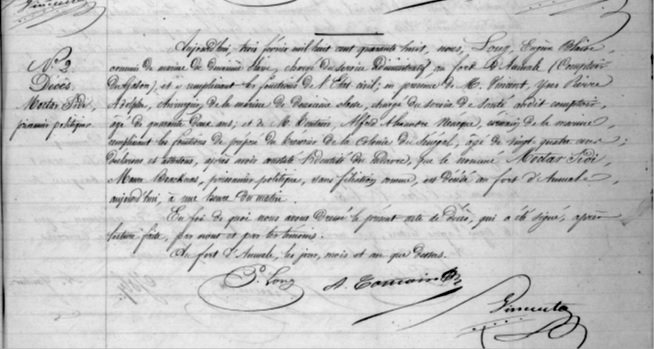 N.° 2
Décès
Moctar Sidi
prisonnier politique.
Aujourd'hui, trois février mil huit cent quarante huit, nous, Long, Eugène
commis de marine de deuxième classe, chargé du service administratif, au fort d'Aumale (Comptoir
du Gabon), et y remplissant les fonctions de l'Etat civil; en présence de M. Vincent, Yves Pierre
Adolphe, chirurgien de la marine de deuxième classe, chargé du service de santé audit comptoir,
âgé de quarante deux ans; et de M. Alfred Alexandre écrivain de la marine
remplissant les fonctions de préposé du trésorier de la colonie du Sénégal, âgé de vingt quatre ans;
déclarons et attestons, après avoir constaté l'identité du cadavre, que le nommé Moctar Sidi,
Maure prisonnier politique, sans filiation connue, est décédé au fort d'Aumale
aujourd'hui, à une heure du matin.
En foi de quoi nous avons dressé le présent acte de décès, qui a été signé, après
lecture faite, par nous et par les témoins.
Au fort d'Aumale, les jour, mois et an que dessus.
Long